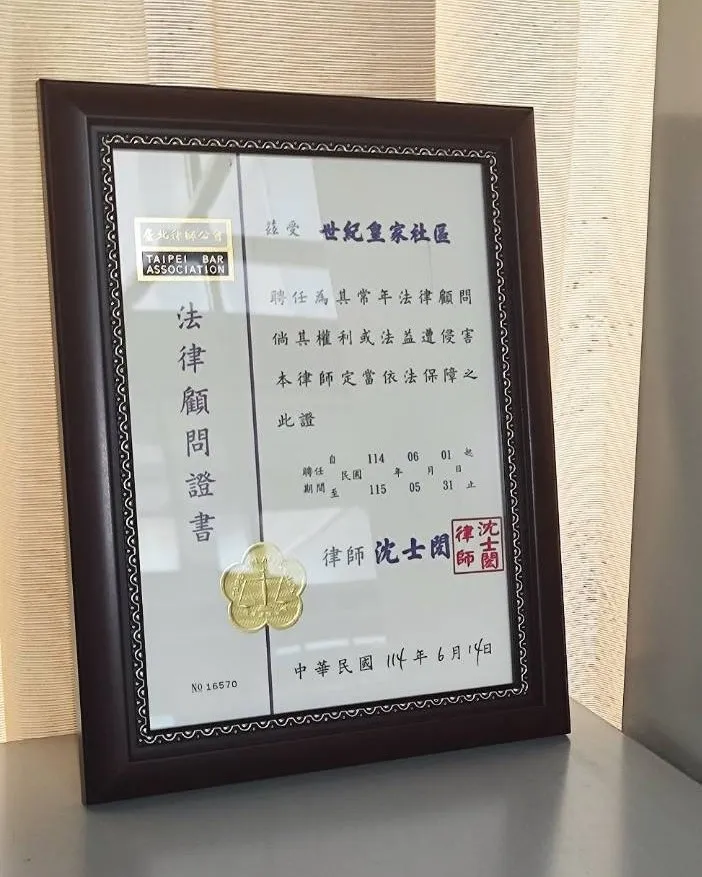 臺北律師公會
TAIPEI BAR
ASSOCIATION
法律顧問證書
茲受 世紀皇家社區
聘任為其常年法律顧問
倘其權利或法益遭侵害
本律師定當依法保障之
此證
聘任期間 自 民國 114 年 06 月 01 日 起
至 115 05 31 止
律師 沈士閎
沈士閎律師
中華民國 114 年 6 月 14 日
№ 16570